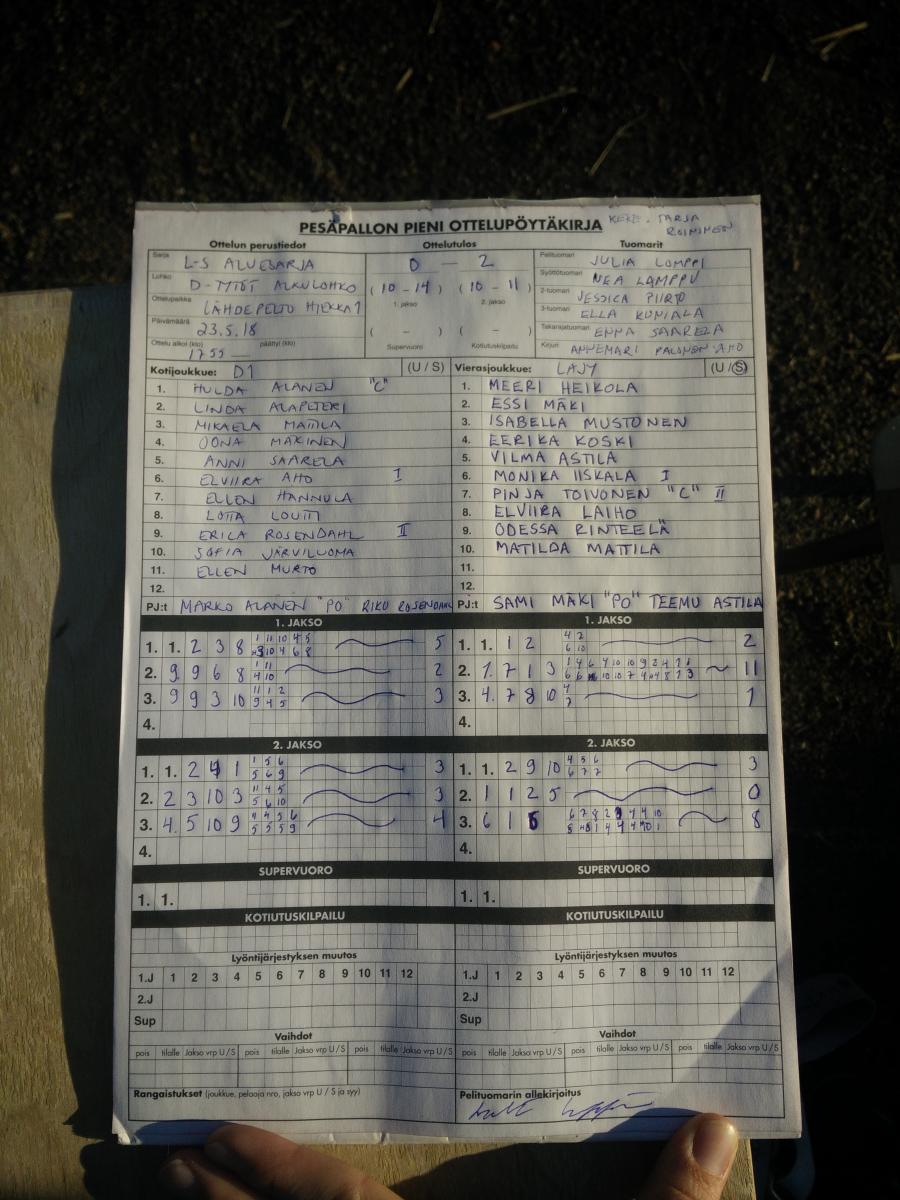 PESÄPALLON PIENI OTTELUPÖYTÄKIRJA
TARJA
ROIMINEN
Ottelun perustiedot Ottelutulos Tuomarit
Sarja L-S ALUESARJA 0 – 2 Pelituomari JULIA LOMPPI
Lohko D-TYTÖT ALKULOHKO (10-14) (10-11) Syöttötuomari NEA LAMPPU
Ottelupaikka LÄHDEPELTO HIEKKA 1 1. jakso 2. jakso 2-tuomari JESSICA PIIRTO
Päivämäärä 23.5.18 3-tuomari ELLA
( – ) ( – ) Takarajatuomari EMMA SAARELA
Ottelu alkoi (klo) 1755 päättyi (klo) Supervuoro Kotiutuskilpailu Kirjuri ANNEMARI PALONEN-AHO
Kotijoukkue: D1 (U / S) Vierasjoukkue: LAJY (U / S)
1. HULDA ALANEN "C" 1. MEERI HEIKOLA
2. LINDA ALAPETERI 2. ESSI MÄKI
3. MIKAELA MATTILA 3. ISABELLA MUSTONEN
4. JONA MÄKINEN 4. EERIKA KOSKI
5. ANNI SAARELA 5. VILMA ASTILA
6. ELVIIRA AHO I 6. MONIKA IISKALA I
7. ELLEN HANNULA 7. PINJA TOIVONEN "C" II
8. LOTTA LOUTTI 8. ELVIIRA LAIHO
9. ERICA ROSENDAHL II 9. ODESSA RINTEELÄ
10. SOFIA JÄRVILUOMA 10. MATILDA MATTILA
11. ELLEN MURTO 11.
12. 12.
PJ:t MARKO ALANEN "PO" RIKU ROSENDAHL PJ:t SAMI MÄKI "PO" TEEMU ASTILA
1. JAKSO 1. JAKSO
1. 1. 2 3 8 5 1. 1. 1 2 2
2. 9 9 6 8 2 2. 1. 7 1 3 11
3. 9 9 3 10 3 3. 4. 7 8 10 1
4. 4.
2. JAKSO 2. JAKSO
1. 1. 2 4 1 3 1. 1. 2 9 10 3
2. 2 3 10 3 3 2. 1 1 2 5 0
3. 4. 5 10 9 4 3. 6 1 8
4. 4.
SUPERVUORO SUPERVUORO
1. 1. 1. 1.
KOTIUTUSKILPAILU KOTIUTUSKILPAILU
Lyöntijärjestyksen muutos Lyöntijärjestyksen muutos
1.J 1 2 3 4 5 6 7 8 9 10 11 12 1.J 1 2 3 4 5 6 7 8 9 10 11 12
2.J 2.J
Sup Sup
Vaihdot Vaihdot
pois tilalle Jakso vrp U / S pois tilalle Jakso vrp U / S pois tilalle Jakso vrp U / S pois tilalle Jakso vrp U / S pois tilalle Jakso vrp U / S pois tilalle Jakso vrp U / S
Rangaistukset (joukkue, pelaaja nro, jakso vrp U / S ja syy) Pelituomarin allekirjoitus